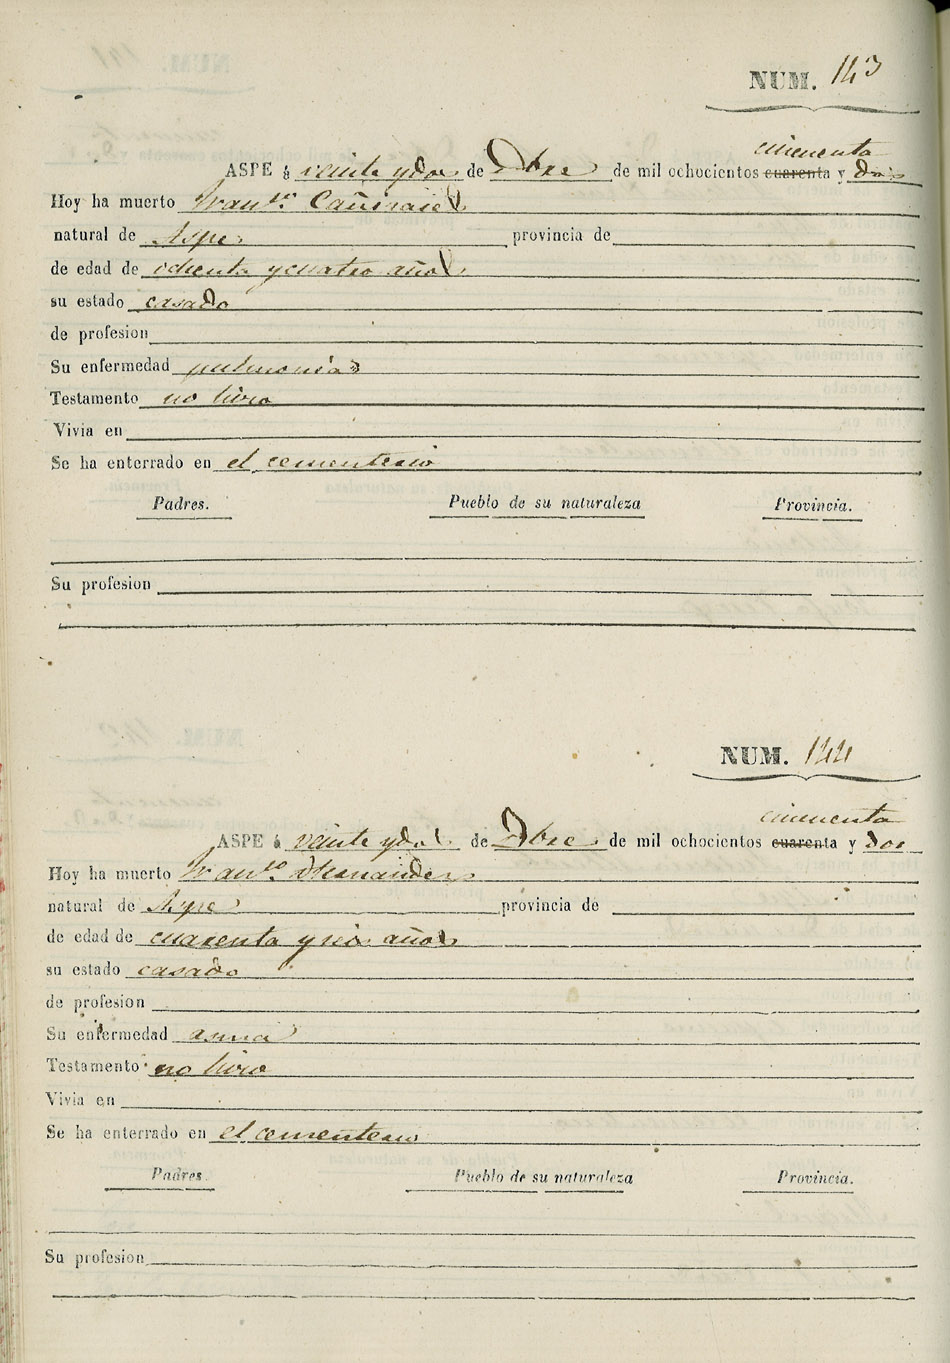 NUM. 143
cincuenta
ASPE á veinte y dos de Dbre de mil ochocientos cuarenta y dos
Hoy ha muerto Franco. Cañizares
natural de Aspe provincia de
de edad de ochenta y cuatro años
su estado casado
de profesion
Su enfermedad pulmonia
Testamento no hizo
Vivia en
Se ha enterrado en el cementerio
Padres. Pueblo de su naturaleza Provincia.
Su profesion
NUM. 144
cincuenta
ASPE á veinte y dos de Dbre de mil ochocientos cuarenta y dos
Hoy ha muerto Franco. Hernandez
natural de Aspe provincia de
de edad de cuarenta y seis años
su estado casado
de profesion
Su enfermedad asma
Testamento no hizo
Vivia en
Se ha enterrado en el cementerio
Padres. Pueblo de su naturaleza Provincia.
Su profesion